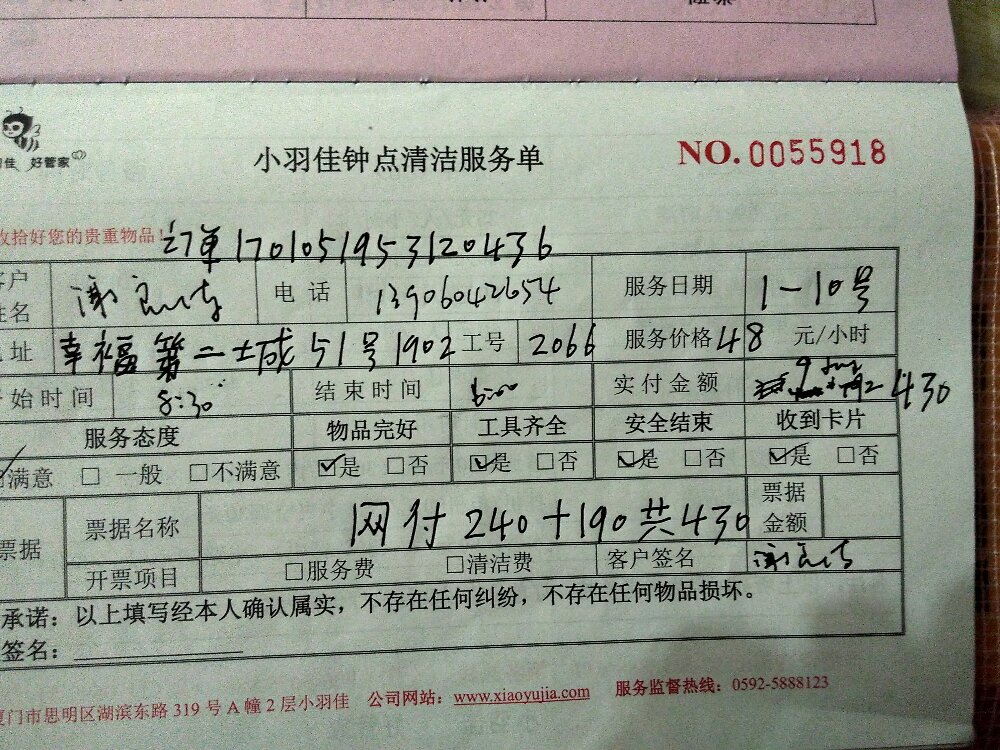 佳 好管家
小羽佳钟点清洁服务单
NO.0055918
收拾好您的贵重物品!
订单1701051953120436
客户姓名 电话 13906042654 服务日期 1-10号
地址 幸福第二城51号1902 工号 2066 服务价格48 元/小时
开始时间 8:30 结束时间 6:00 实付金额 430
服务态度 物品完好 工具齐全 安全结束 收到卡片
☑满意 □一般 □不满意 ☑是 □否 ☑是 □否 ☑是 □否 ☑是 □否
票据 票据名称 网付240+190共430 票据金额
开票项目 □服务费 □清洁费 客户签名
承诺：以上填写经本人确认属实，不存在任何纠纷，不存在任何物品损坏。
签名：
厦门市思明区湖滨东路319号A幢2层小羽佳 公司网站：www.xiaoyujia.com 服务监督热线：0592-5888123